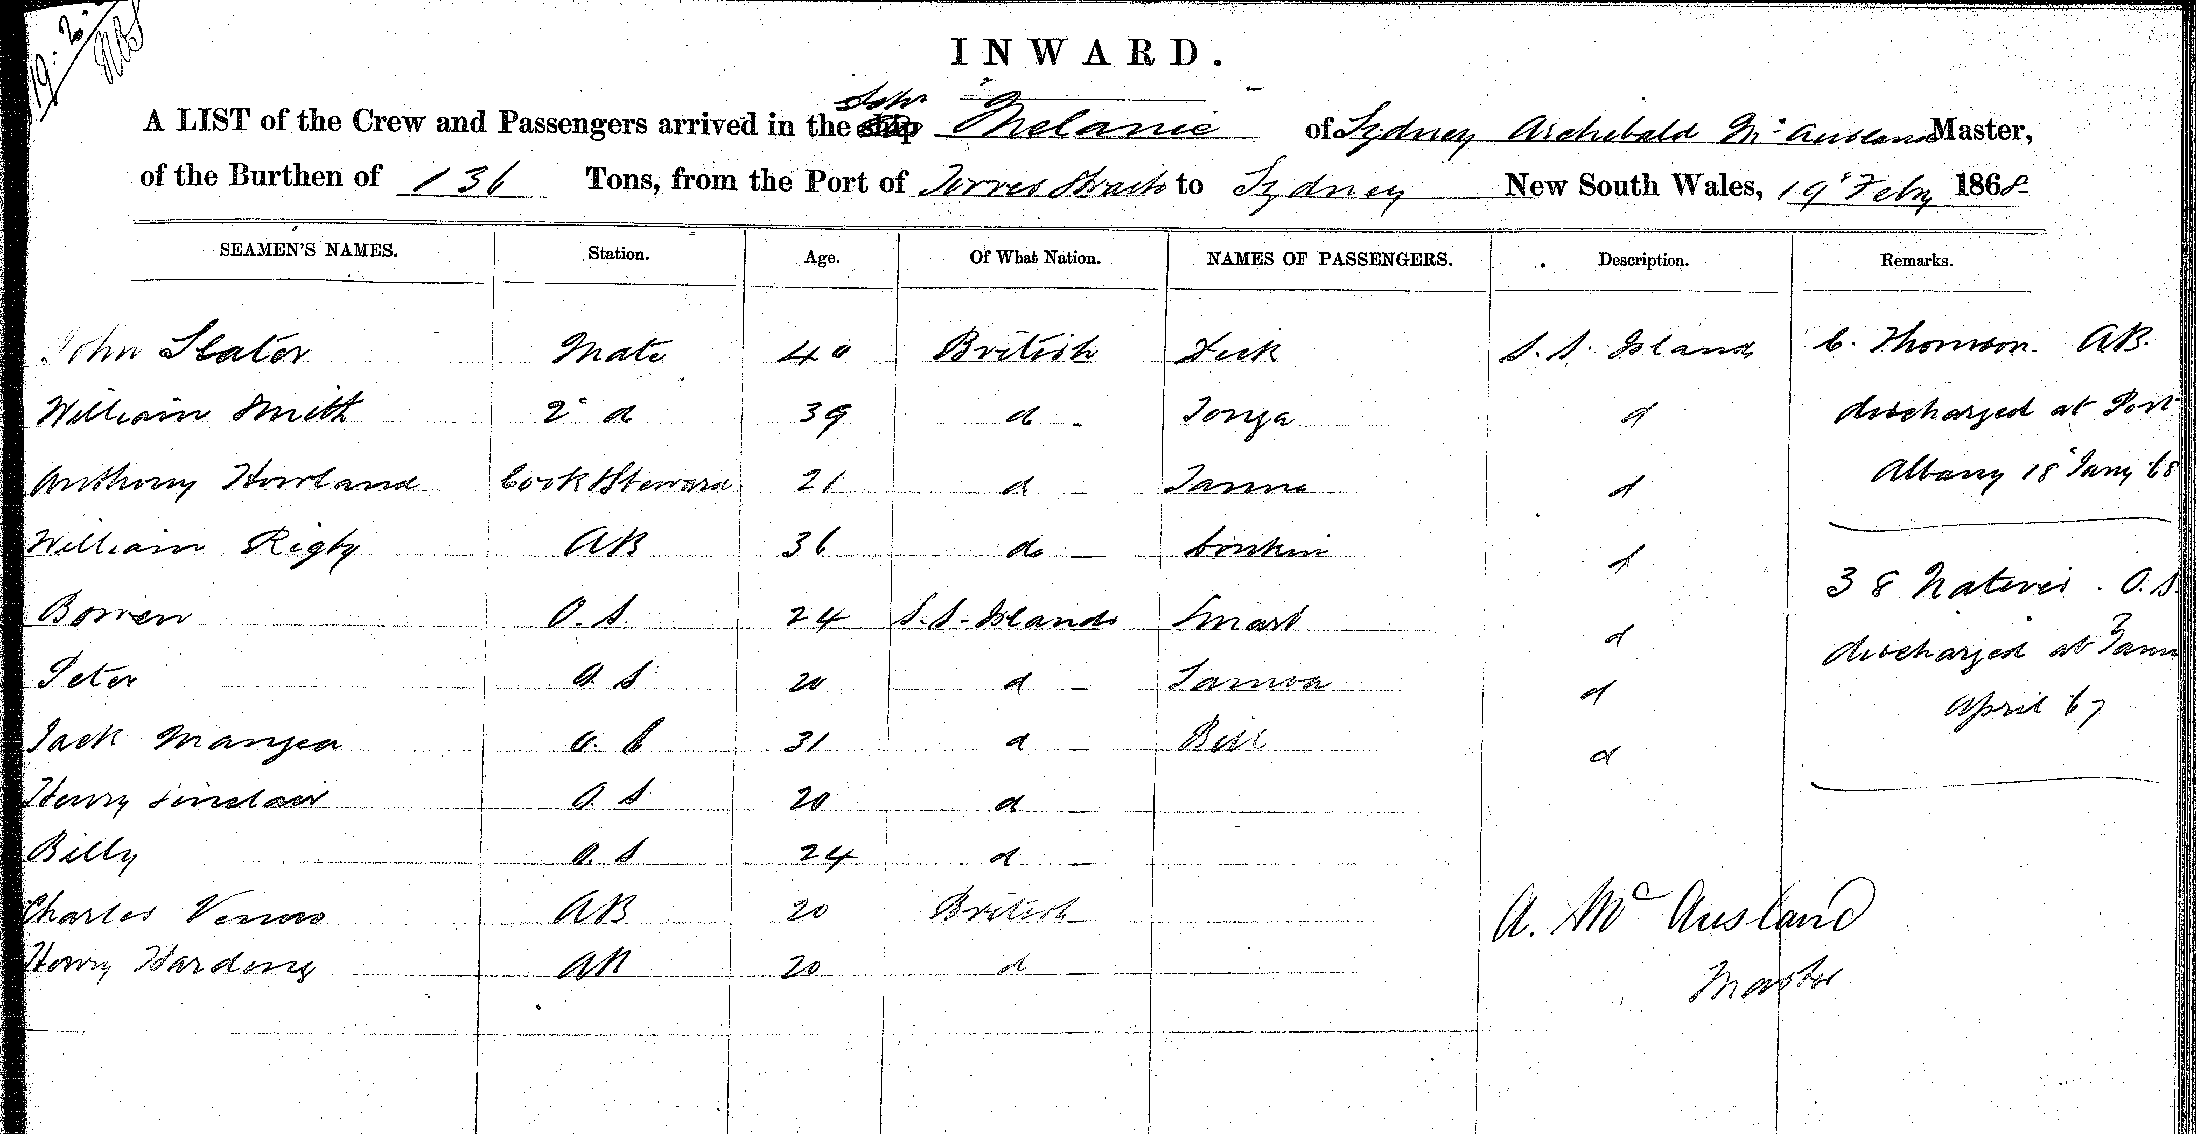 19. 2.
INWARD.
A LIST of the Crew and Passengers arrived in the Schr Melanie of Sydney Archibald Mc Ausland Master,
of the Burthen of 136 Tons, from the Port of Torres Straits to Sydney New South Wales, 19 Feby 1868
SEAMEN'S NAMES. Station. Age. Of What Nation. NAMES OF PASSENGERS. Description. Remarks.
John Slater Mate 40 British Dick S. S. Island C. Thomson. AB.
William Smith 2d d 39 d Tonga d discharged at Port
Anthony Howland Cook & Steward 21 d Tanna d Albany 18 Jany 68
William Rigby AB 36 do d
Bowen O. S 24 S. S. Islands Smart d 38 Natives. O. S.
Peter O. S 20 d Samoa d discharged at Tann
Jack Mangea 31 d Bill d April 67
Henry Sinclair O. S 20 d
Billy O. S 24 d
Charles AB 20 British
Henry Harding AB 20 d
A. Mc Ausland
Master